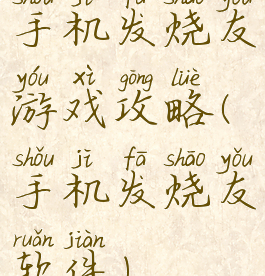 shǒu jī fā shāo yǒu
手机发烧友
yóu xì gōng lüè
游戏攻略(
shǒu jī fā shāo yǒu
手机发烧友
ruǎn jiàn
软件)